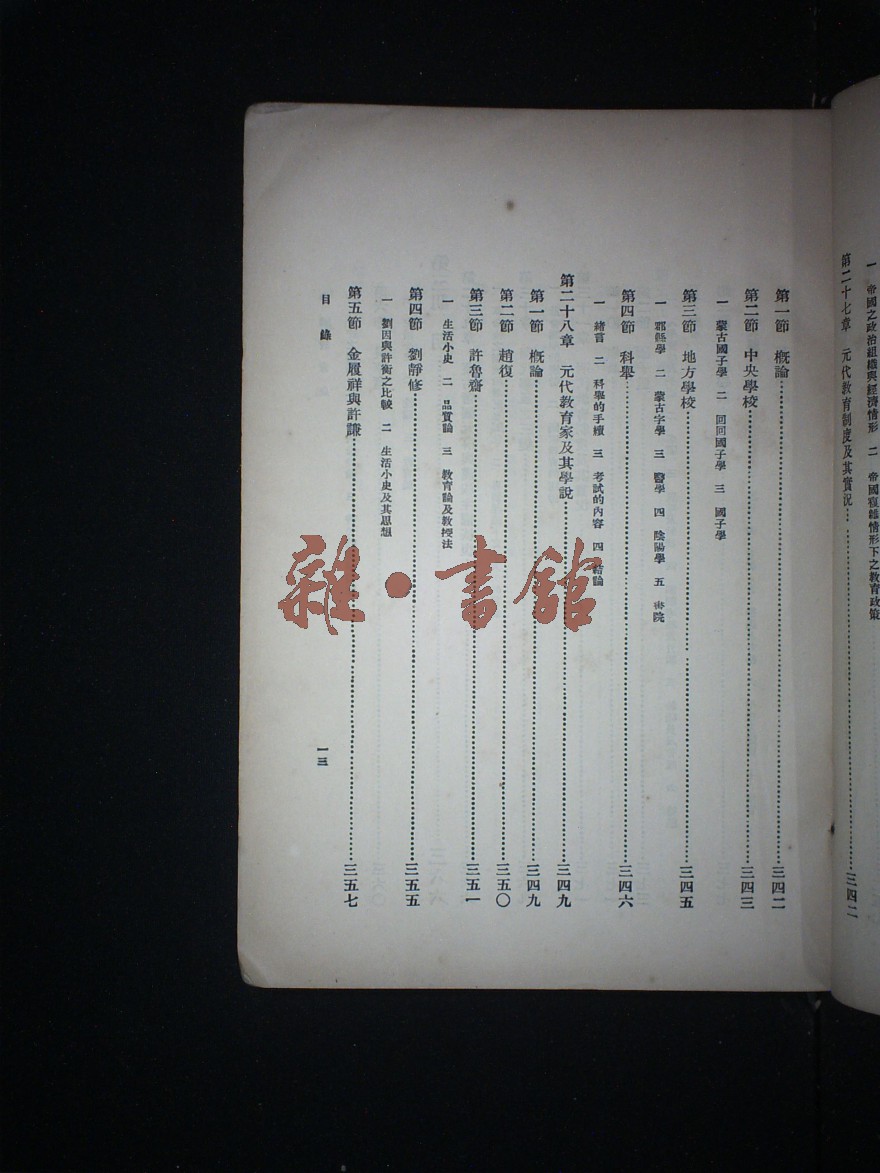 一 帝國之政治組織與經濟情形 二 帝國複雜情形下之教育政策
第二十七章 元代教育制度及其實況……三四二
第一節 概論……三四二
第二節 中央學校……三四三
一 蒙古國子學 二 回回國子學 三 國子學
第三節 地方學校……三四五
一 郡縣學 二 蒙古字學 三 醫學 四 陰陽學 五 書院
第四節 科舉……三四六
一 緒言 二 科舉的手續 三 考試的內容 四 結論
第二十八章 元代教育家及其學說……三四九
第一節 概論……三四九
第二節 趙復……三五〇
第三節 許魯齋……三五一
一 生活小史 二 品質論 三 教育論及教授法
第四節 劉靜修……三五五
一 劉因與許衡之比較 二 生活小史及其思想
第五節 金履祥與許謙……三五七
目錄 一三
雜·書館